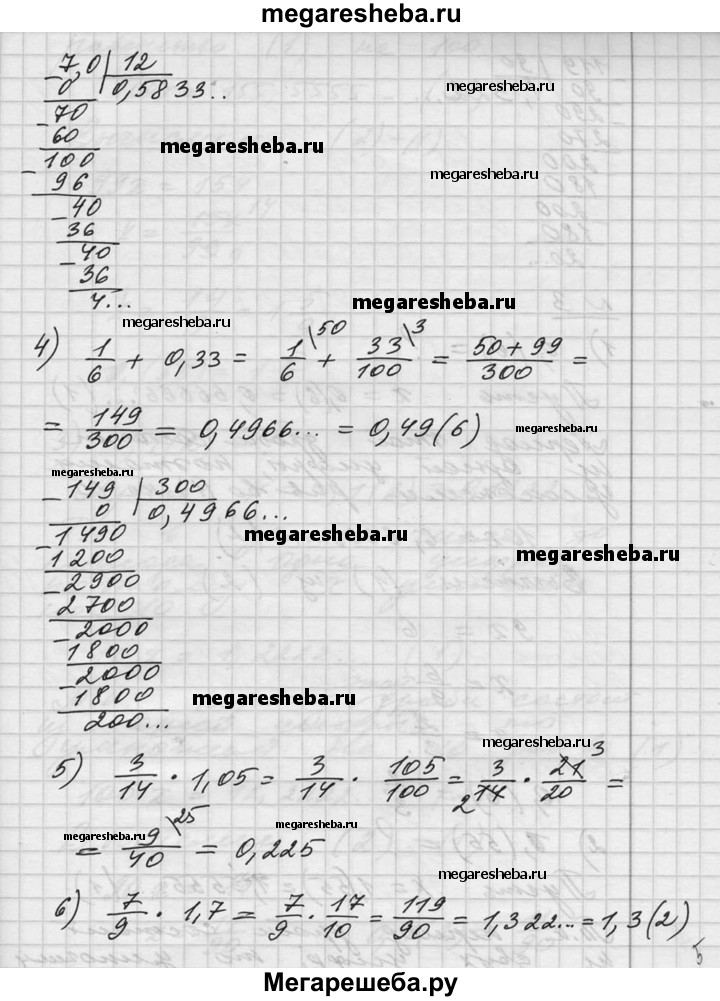 megaresheba.ru
7,0 | 12
0 | 0,5833..
megaresheba.ru
70
60
megaresheba.ru
100
96
megaresheba.ru
40
36
40
36
4...
megaresheba.ru
megaresheba.ru
4) 1/6 + 0,33 = 1/6 \50 + 33/100 \3 = (50 + 99)/300 =
= 149/300 = 0,4966... = 0,49(6)
megaresheba.ru
megaresheba.ru
149 | 300
0 | 0,4966...
1490
megaresheba.ru
1200
megaresheba.ru
2900
2700
2000
1800
2000
1800
megaresheba.ru
200...
megaresheba.ru
5) 3/14 · 1,05 = 3/14 · 105/100 = 3/14 2 · 21/20 3 =
megaresheba.ru
= 9/40 \25 = 0,225
megaresheba.ru
megaresheba.ru
6) 7/9 · 1,7 = 7/9 · 17/10 = 119/90 = 1,322... = 1,3(2)
megaresheba.ru
5
Мегарешеба.ру